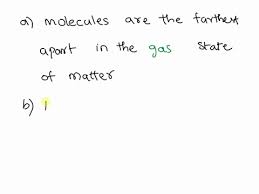 a) molecules are the farthest
apart in the gas state
of matter
b)